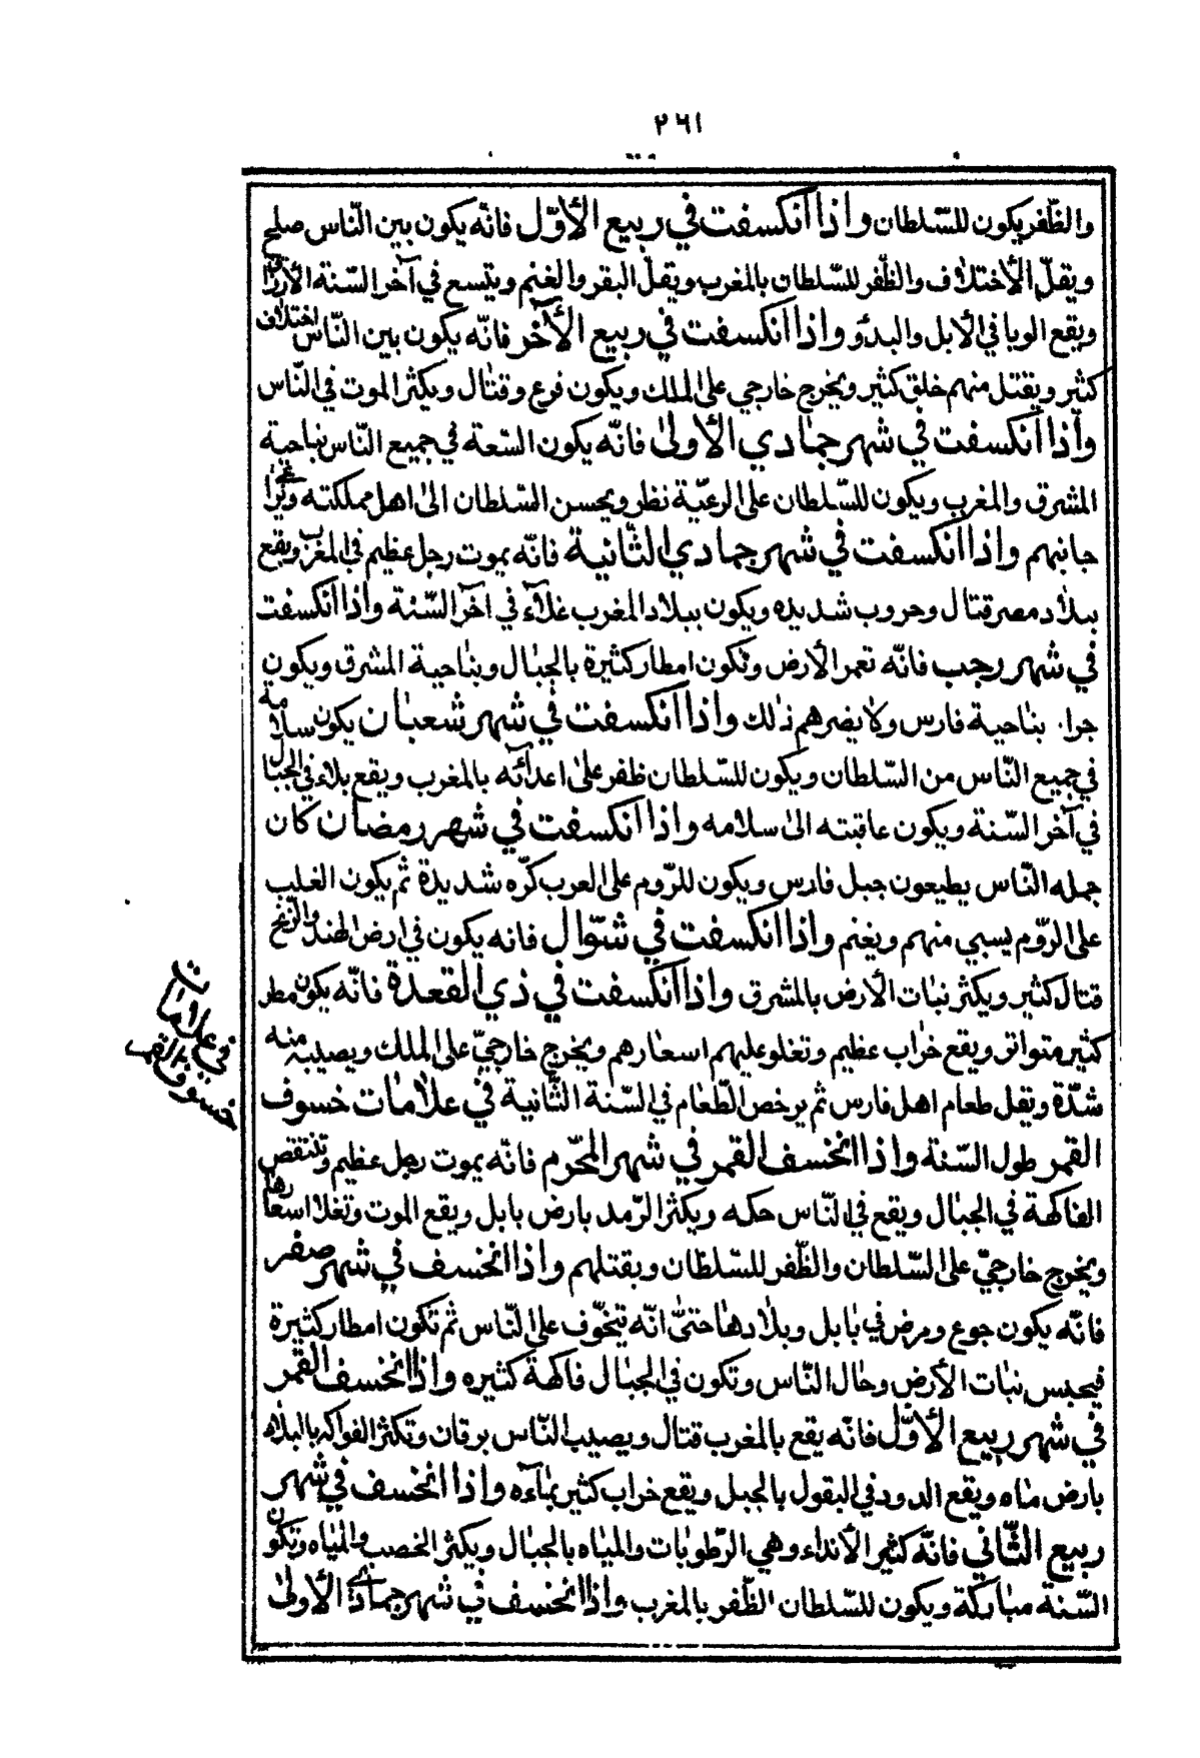 ٢٦١
والظّفر يكون للسّلطان واذا انكسفت في ربيع الأوّل فانّه يكون بين النّاس صلح
ويقلّ الأختلاف والظّفر للسّلطان بالمغرب ويقلّ البقر والغنم ويتسع في آخر السّنة الأرزاق
ويقع الوبا في الأبل والبدو واذا انكسفت في ربيع الآخر فانّه يكون بين النّاس اختلاف
كثير ويقتل منهم خلق كثير ويخرج خارجي على الملك ويكون فزع وقتال ويكثر الموت في النّاس
واذا انكسفت في شهر جمادي الأولى فانّه يكون السّعة في جميع النّاس بناحية
المشرق والمغرب ويكون للسّلطان على الرعيّة نظر ويحسن السّلطان الى اهل مملكته
جانبهم واذا انكسفت في شهر جمادي الثّانية فانّه يموت رجل عظيم في المغرب ويقع
ببلاد مصر قتال وحروب شديده ويكون ببلاد المغرب غلآء في آخر السّنة واذا انكسفت
في شهر رجب فانّه تعمر الأرض وتكون امطار كثيرة بالجبال وبناحية المشرق ويكون
جراد بناحية فارس ولا يضرهم ذلك واذا انكسفت في شهر شعبان يكون سلامة
في جميع النّاس من السّلطان ويكون للسّلطان ظفر على اعدائه بالمغرب ويقع بلاء في الجبال
في آخر السّنة ويكون عاقبته الى سلامه واذا انكسفت في شهر رمضان كان
جمله النّاس يطيعون جبل فارس ويكون للرّوم على العرب كرّه شديدة ثم يكون الغلب
على الرّوم يسبي منهم ويغنم واذا انكسفت في شوّال فانه يكون في ارض الهند والزّنج
قتال كثير ويكثر نبات الأرض بالمشرق واذا انكسفت في ذي القعدة فانّه يكون مطر
كثير متواتر ويقع خراب عظيم وتغلو عليهم اسعارهم ويخرج خارجيّ على الملك ويصليبه منه
شدّة ويقل طعام اهل فارس ثم يرخص الطّعام في السّنة الثّانية في علامات خسوف
القمر طول السّنة واذا انخسف القمر في شهر المحّرم فانّه يموت رجل عظيم وتنتقص
الفاكهة في الجبال ويقع في النّاس حكه ويكثر الرّمد بارض بابل ويقع الموت وتغلا اسعارها
ويخرج خارجيّ على السّلطان والظّفر للسّلطان ويقتلهم واذا انخسف في شهر صفر
فانّه يكون جوع ومرض في بابل وبلادها حتّى انّه يتخوّف على النّاس ثم تكون امطار كثيرة
فيحبس نبات الأرض وحال النّاس وتكون في الجبال فاكهة كثيره واذا انخسف القمر
في شهر ربيع الأوّل فانّه يقع بالمغرب قتال ويصيب النّاس يرقان وتكثر الفواكه بالبلاد
بارض ماه ويقع الدود في البقول بالجبل ويقع خراب كثير بماءه واذا انخسف في شهر
ربيع الثّاني فانّه كثير الأنداء وهي الرّطوبات والمياه بالجبال ويكثر الخصب والمياه وتكون
السّنة مباركة ويكون للسّلطان الظّفر بالمغرب واذا انخسف في شهر جمادي الأولى
في علامات
خسوف القمر